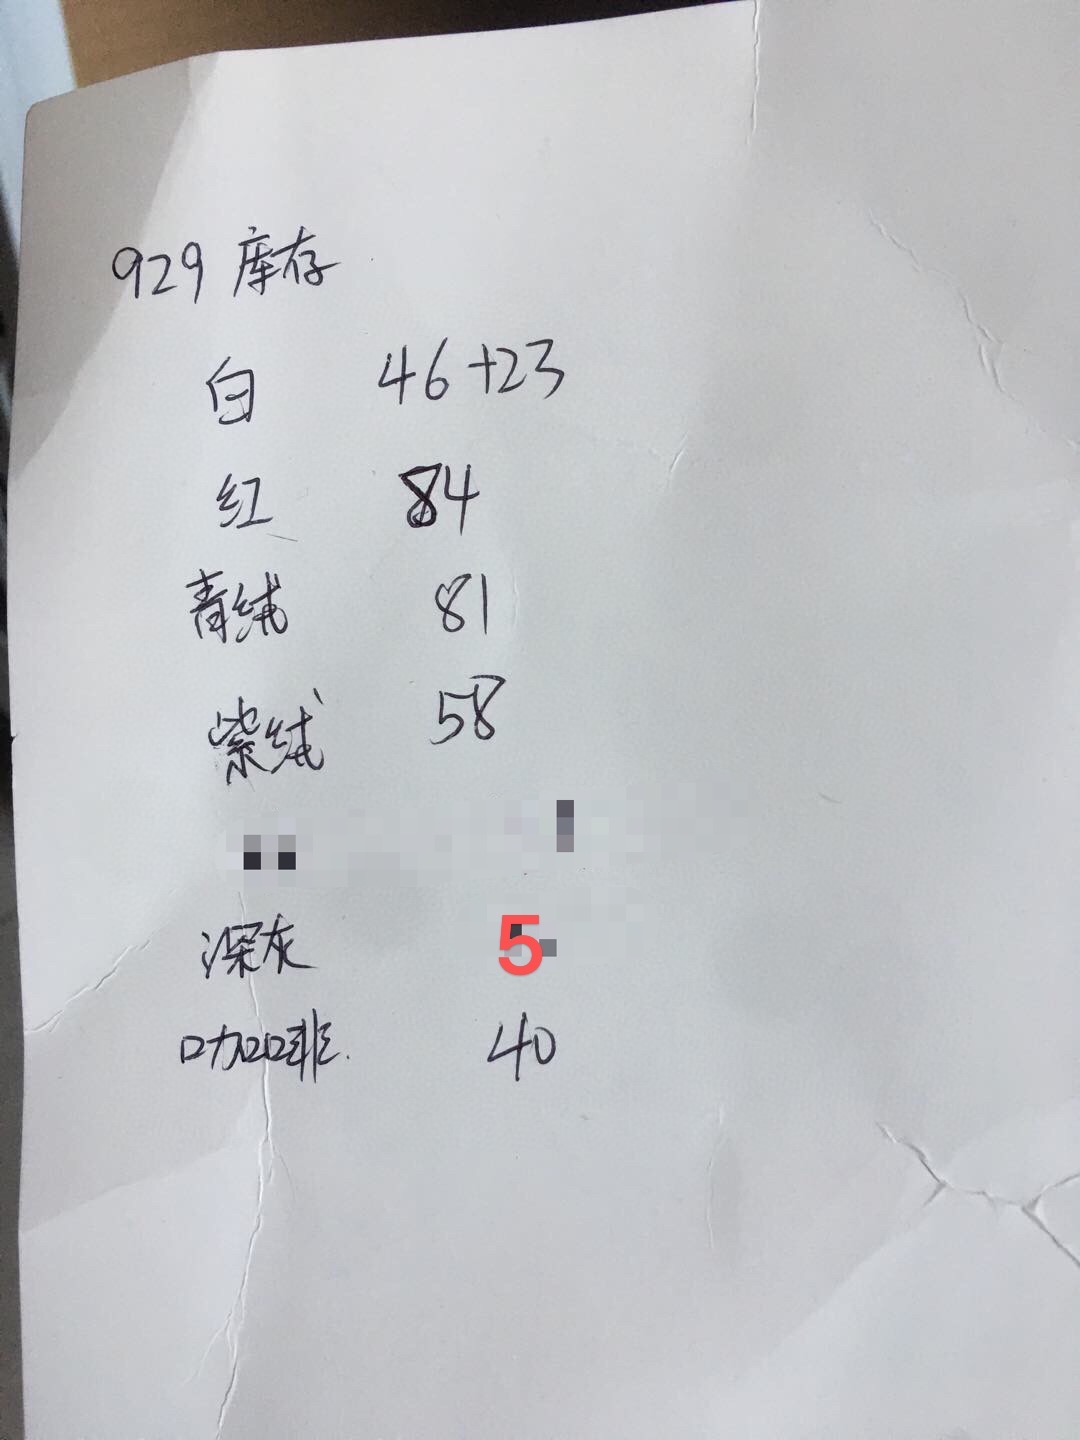 929 库存
白 46+23
红 84
青绒 81
紫绒 58
深灰 5
咖啡. 40